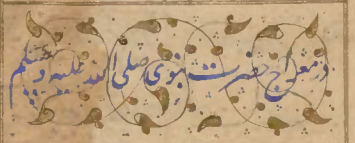 در معراج حضرت نبوی صلی الله علیه و سلم